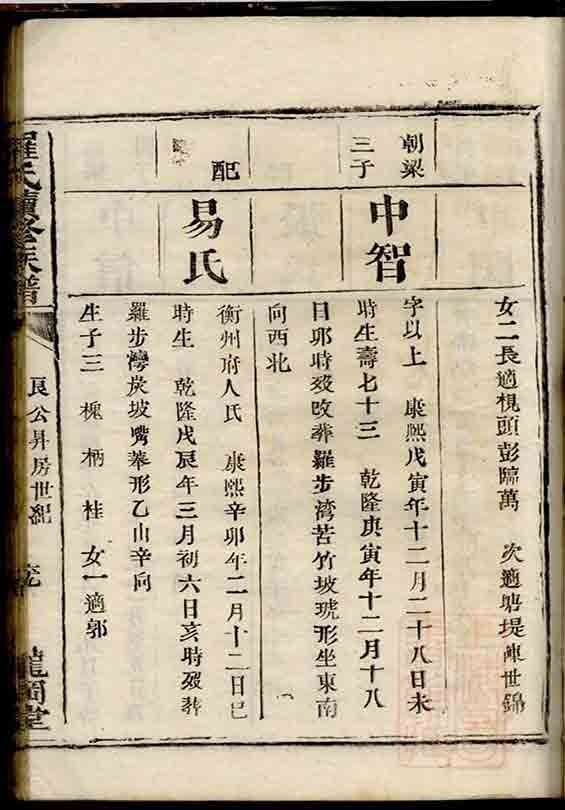 女二長適梘頭彭臨萬　次適塘堤陳世錦
朝梁
三子
申智
字以上　康熙戊寅年十二月二十八日未
時生壽七十三　乾隆庚寅年十二月十八
日卯時歿改葬羅步湾苦竹坡琥形坐東南
向西北
配
易氏
衡州府人氏　康熙辛卯年二月十二日巳
時生　乾隆戊辰年三月初六日亥時歿葬
羅步灣炭坡嘴華形乙山辛向
生子三　槐　柄　桂　女一適郭
羅氏續修族譜
良公昇房世紀
龍門堂